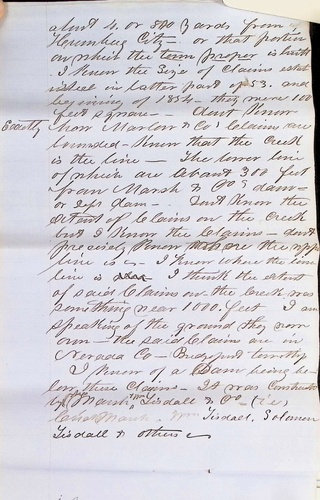 about 4. or 500 yards from
Heumbug City - or that portion
on which the town proper is built
I know the size of Claims estab
lished in latter part of 53. and
beginning of 1854 - they were 100
feet square - Dont Know
Exactly how Marlow & Co's Claims are
bounded - Know that the Creek
is the line - The lower line
of which are about 300 feet
from Marsh & Co's dam -
or Dam - Dont Know the
extent of Claims on the Creek
but I Know the Claims - dont
precisely Know where the upper
line is - I Know where the
line is I think the extent
of said Claims on the Creek was
something near 1000. feet - I am
speaking of the ground they now
own - the said Claims are in
Nevada Co - Bridgeport township
I Know of a Dam being be-
low these Claims - It was Constructed
by Marsh Tisdall & Co - (i.e)
Marsh. Wm Tisdall, Solomon
Tisdall & others